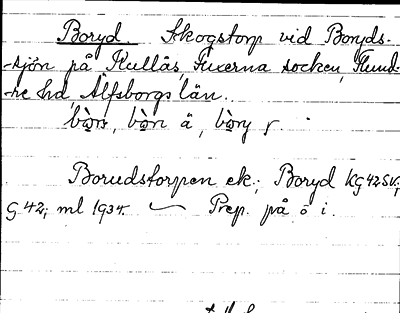 Boryd. Skogstorp vid Boryds-
-sjön på Kullås, Fuxerna socken, Flund-
-re hd, Älfsborgs län.
Borudstorpen ek.; Boryd KG 42SV;
G 42; ml 1934. — Prep. på o i.